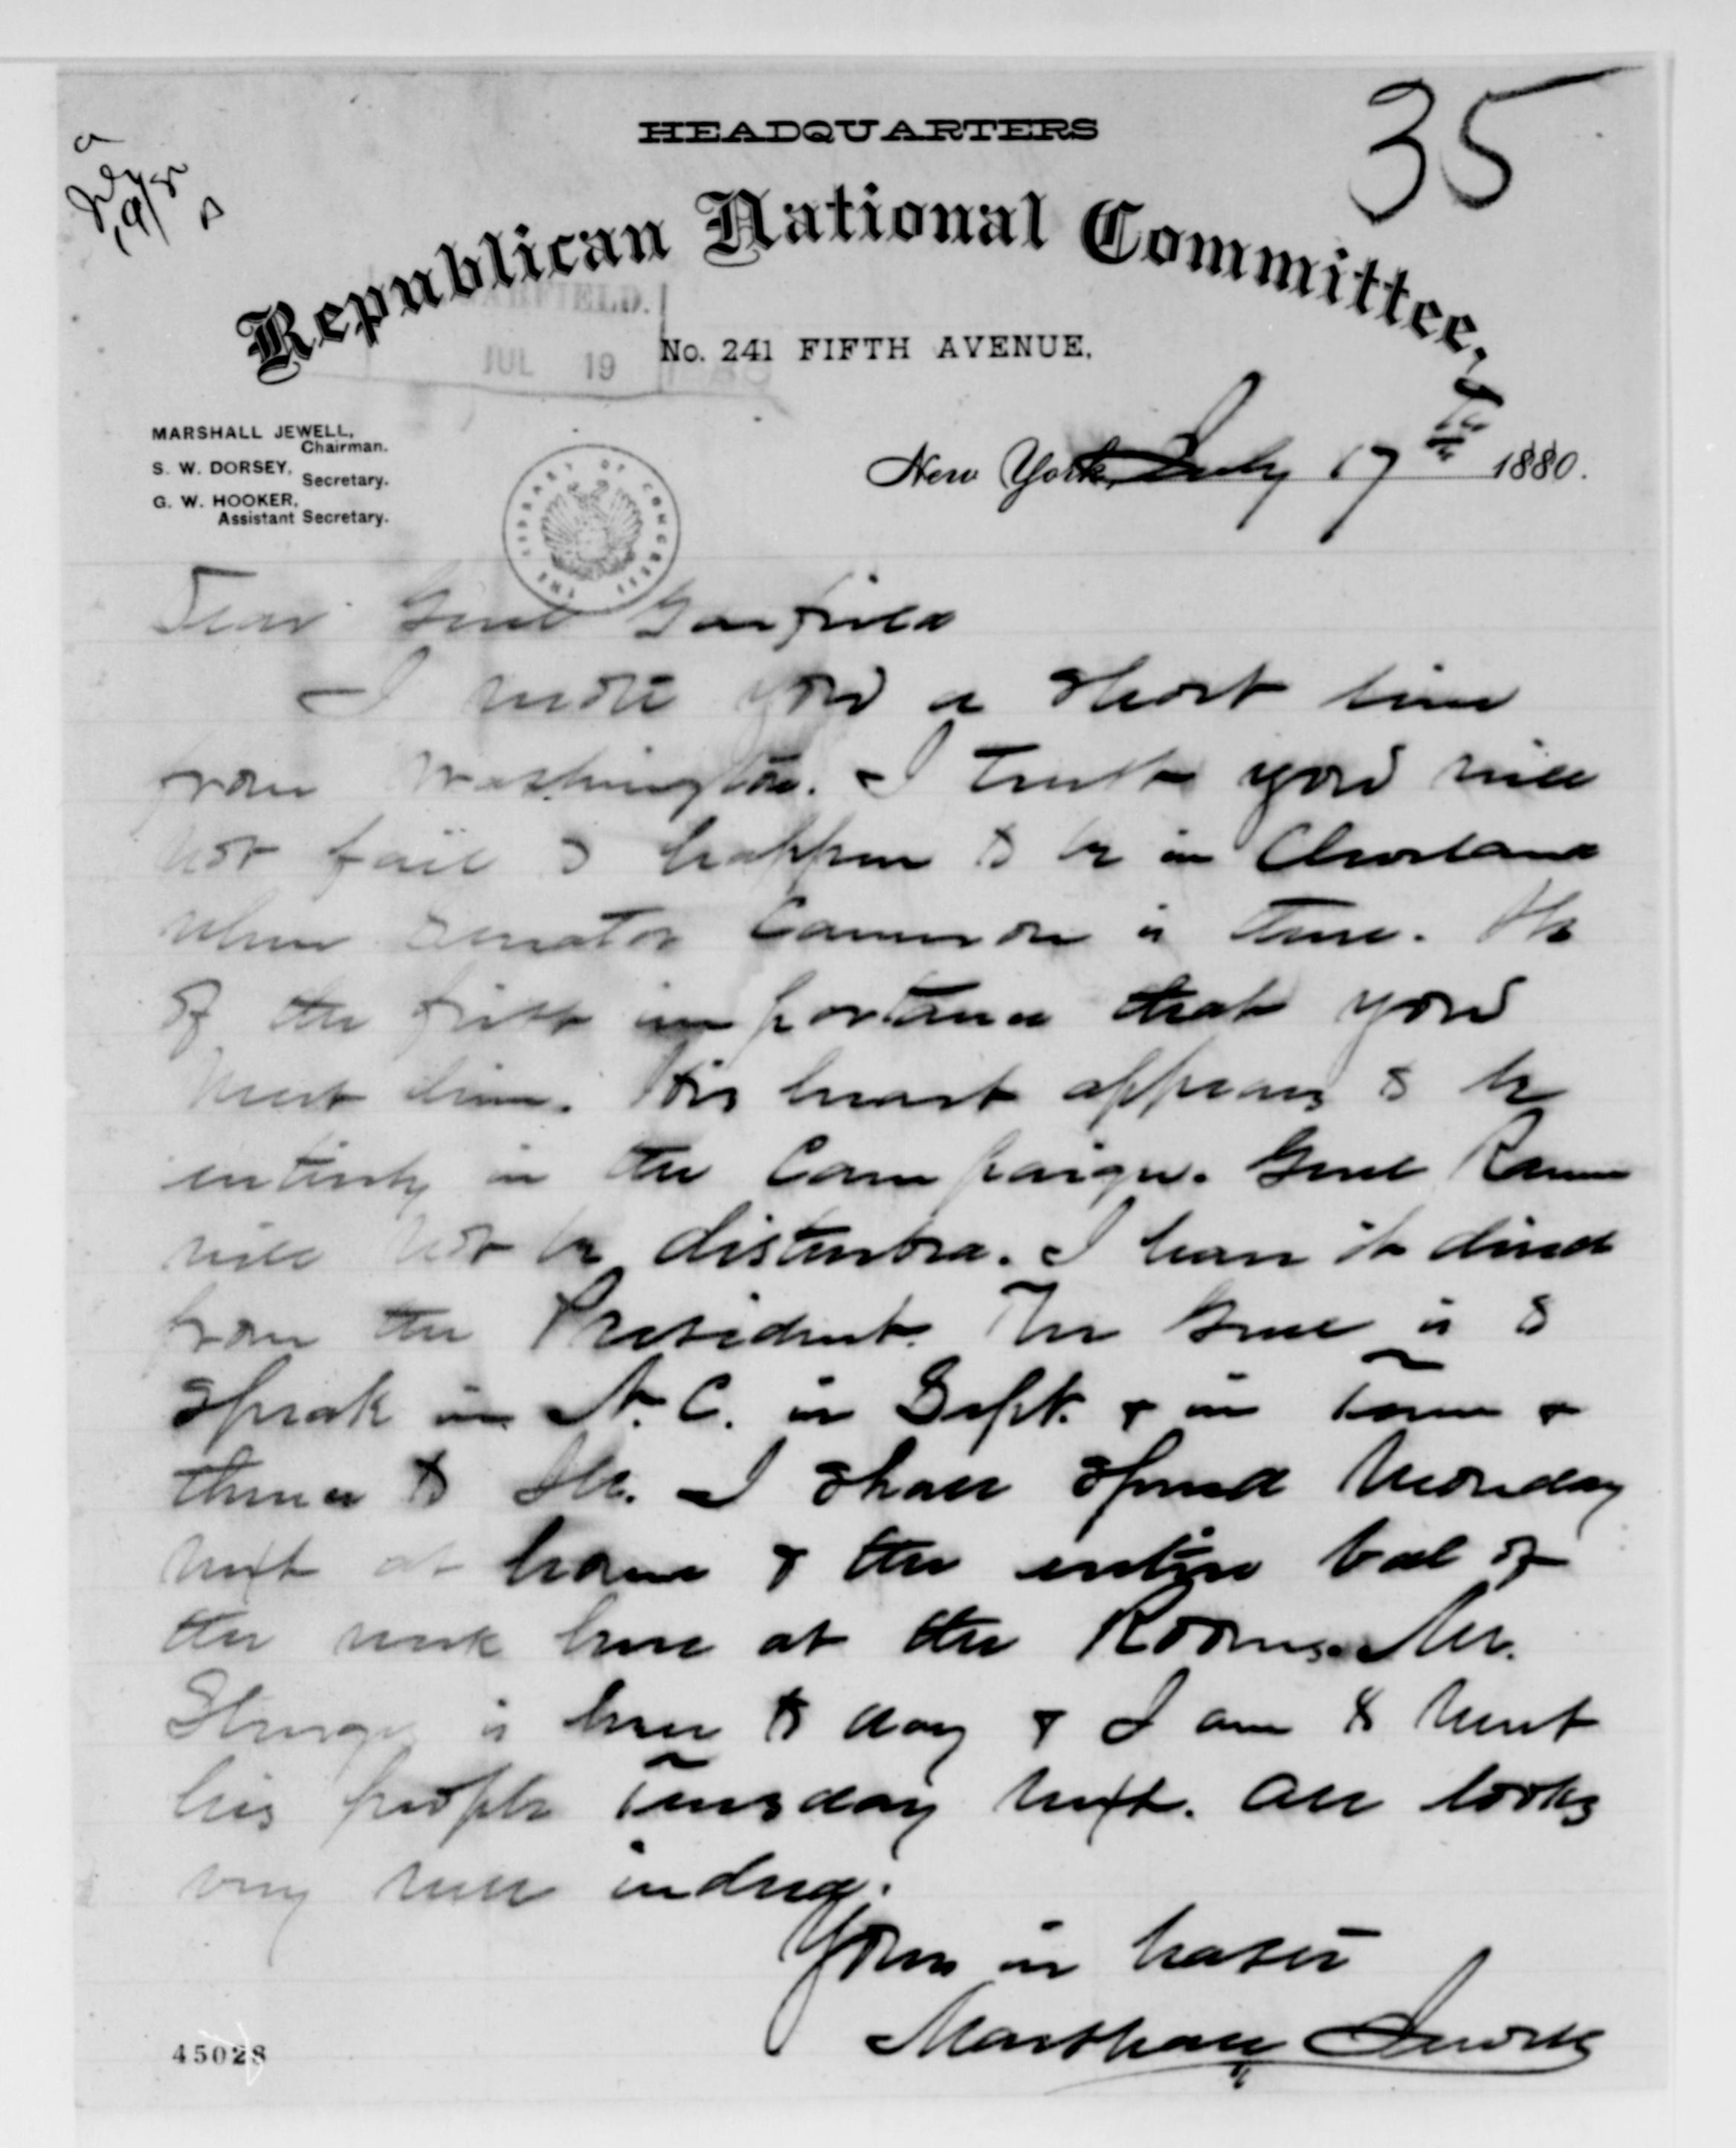 35
HEADQUARTERS
Republican National Committee,
GARFIELD.
No. 241 FIFTH AVENUE,
JUL 19
MARSHALL JEWELL,
Chairman.
S. W. DORSEY,
Secretary.
G. W. HOOKER,
Assistant Secretary.
New York, July 17th 1880.
THE LIBRARY OF CONGRESS
Dear Genl Garfield
I wrote you a short line
from Washington. I trust you will
not fail to happen to be in Cleveland
when Senator Cameron is there. Its
of the first importance that you
meet him. His heart appears to be
entirely in the Campaign. Genl Raum
will not be disturbed. I have it direct
from the President. The Genl is to
speak in N. C. in Sept. & in
thence to Ill. I shall spend Monday
next at home & the entire bal of
the week here at the Rooms. Mr.
is here to day & I am to meet
his people Tuesday next. All looks
very well indeed.
Yours in haste
Marshall Jewell
45028